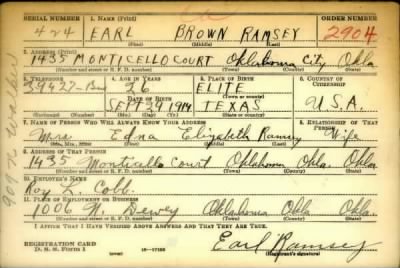 SERIAL NUMBER 1. NAME (Print) ORDER NUMBER
424 EARL BROWN RAMSEY 2904
(First) (Middle) (Last)
2. ADDRESS (Print)
1435 MONTICELLO COURT Oklahoma City Okla
(Number and street or R. F. D. number) (Town) (County) (State)
3. TELEPHONE 4. AGE IN YEARS 5. PLACE OF BIRTH 6. COUNTRY OF CITIZENSHIP
39427-Bus 26 ELITE
DATE OF BIRTH (Town or county)
SEPT 29 1914 TEXAS U.S.A.
(Mo.) (Day) (Yr.) (State or country)
7. NAME OF PERSON WHO WILL ALWAYS KNOW YOUR ADDRESS 8. RELATIONSHIP OF THAT PERSON
Mrs Edna Elizabeth Ramsey Wife
(Mr., Mrs., Miss) (First) (Middle) (Last)
9. ADDRESS OF THAT PERSON
1435 Monticello Court Oklahoma Okla. Okla
(Number and street or R. F. D. number) (Town) (County) (State)
10. EMPLOYER'S NAME
Roy L. Cobb.
11. PLACE OF EMPLOYMENT OR BUSINESS
1006 N. Dewey Oklahoma Okla Okla
(Number and street or R. F. D. number) (Town) (County) (State)
I AFFIRM THAT I HAVE VERIFIED ABOVE ANSWERS AND THAT THEY ARE TRUE.
REGISTRATION CARD
D. S. S. Form 1 Earl Ramsey
(Registrant's signature)
909 Walker